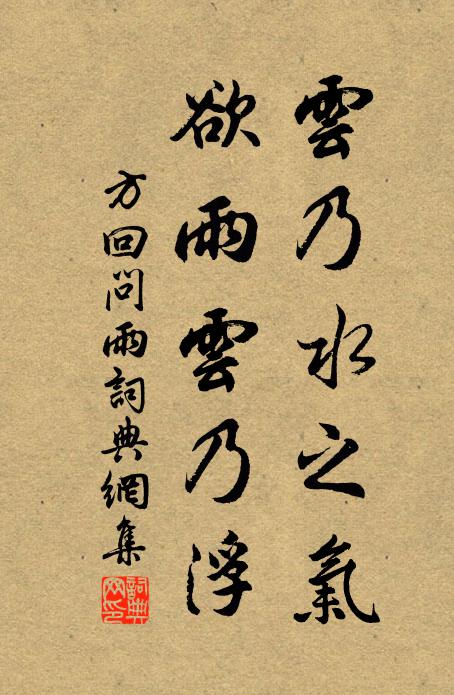 雲乃水之氣
欲雨雲乃浮
方回問雨詞典網集
詞典
网印